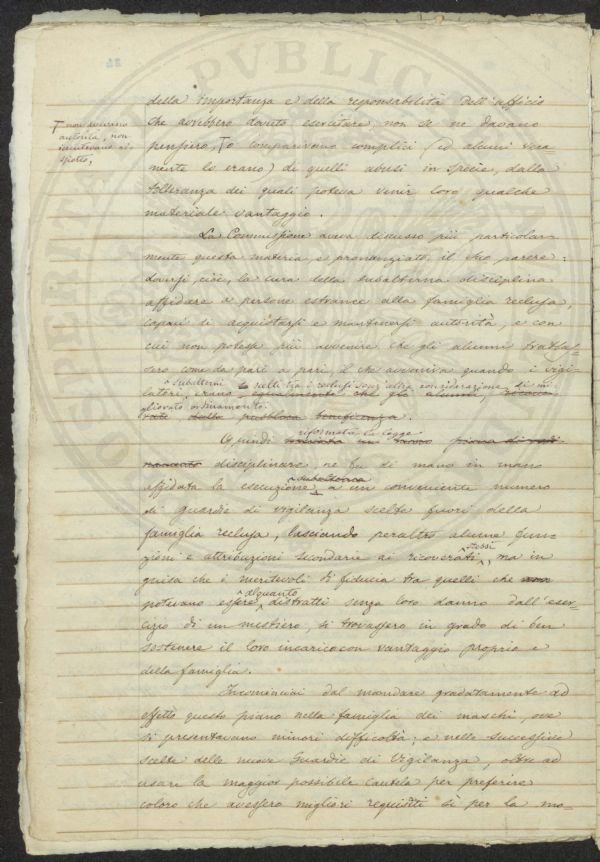 della importanza e della reponsabilità dell'ufficio
che avrebbero dovuto esercitare, non se ne davano
pensiero, T o comparivano complici (ed alcuni vera
mente lo erano) di quelli abusi in specie, dalla
tolleranza dei quali poteva venir loro qualche
materiale vantaggio.
T non avevano
autorità, non
riscuotevano ri-
spetto,
La Commissione aveva discusso più particolar-
mente questa materia, e pronunziato il suo parere:
doversi cioè, la cura della subalterna disciplina
affidare a persone estranee alla famiglia reclusa,
capaci di acquistarsi e mantenersi autorità, e con
cui non potesse più avvenire che gli alunni trattas-
sero come da pari a pari, il che avveniva quando i vigi-
subalterni scelti tra i reclusi senz'altra considerazione di mi
latori, erano egualmente che gli alunni,
gliorato ordinamento.
della pubblica beneficenza.
riformata la legge
Quindi
disciplinare, ne fu di mano in mano
subalterna
affidata la esecuzione a un conveniente numero
di guardie di vigilanza scelte fuori della
famiglia reclusa, lasciando peraltro alcune fun-
zioni e attribuzioni secondarie ai ricoverati stessi, ma in
guisa che i meritevoli di fiducia tra quelli che non
potevano essere alquanto distratti senza loro danno dall'eser-
cizio di un mestiero, si trovassero in grado di ben
sostenere il loro incarico con vantaggio proprio e
della famiglia.
Incominciai dal mandare gradatamente ad
effetto questo piano nella famiglia dei maschi, ove
si presentavano minori difficoltà; e nelle successive
scelte delle nuove Guardie di Vigilanza, oltre ad
usare la maggior possibile cautela per preferire
coloro che avessero migliori requisiti sì per la mo-